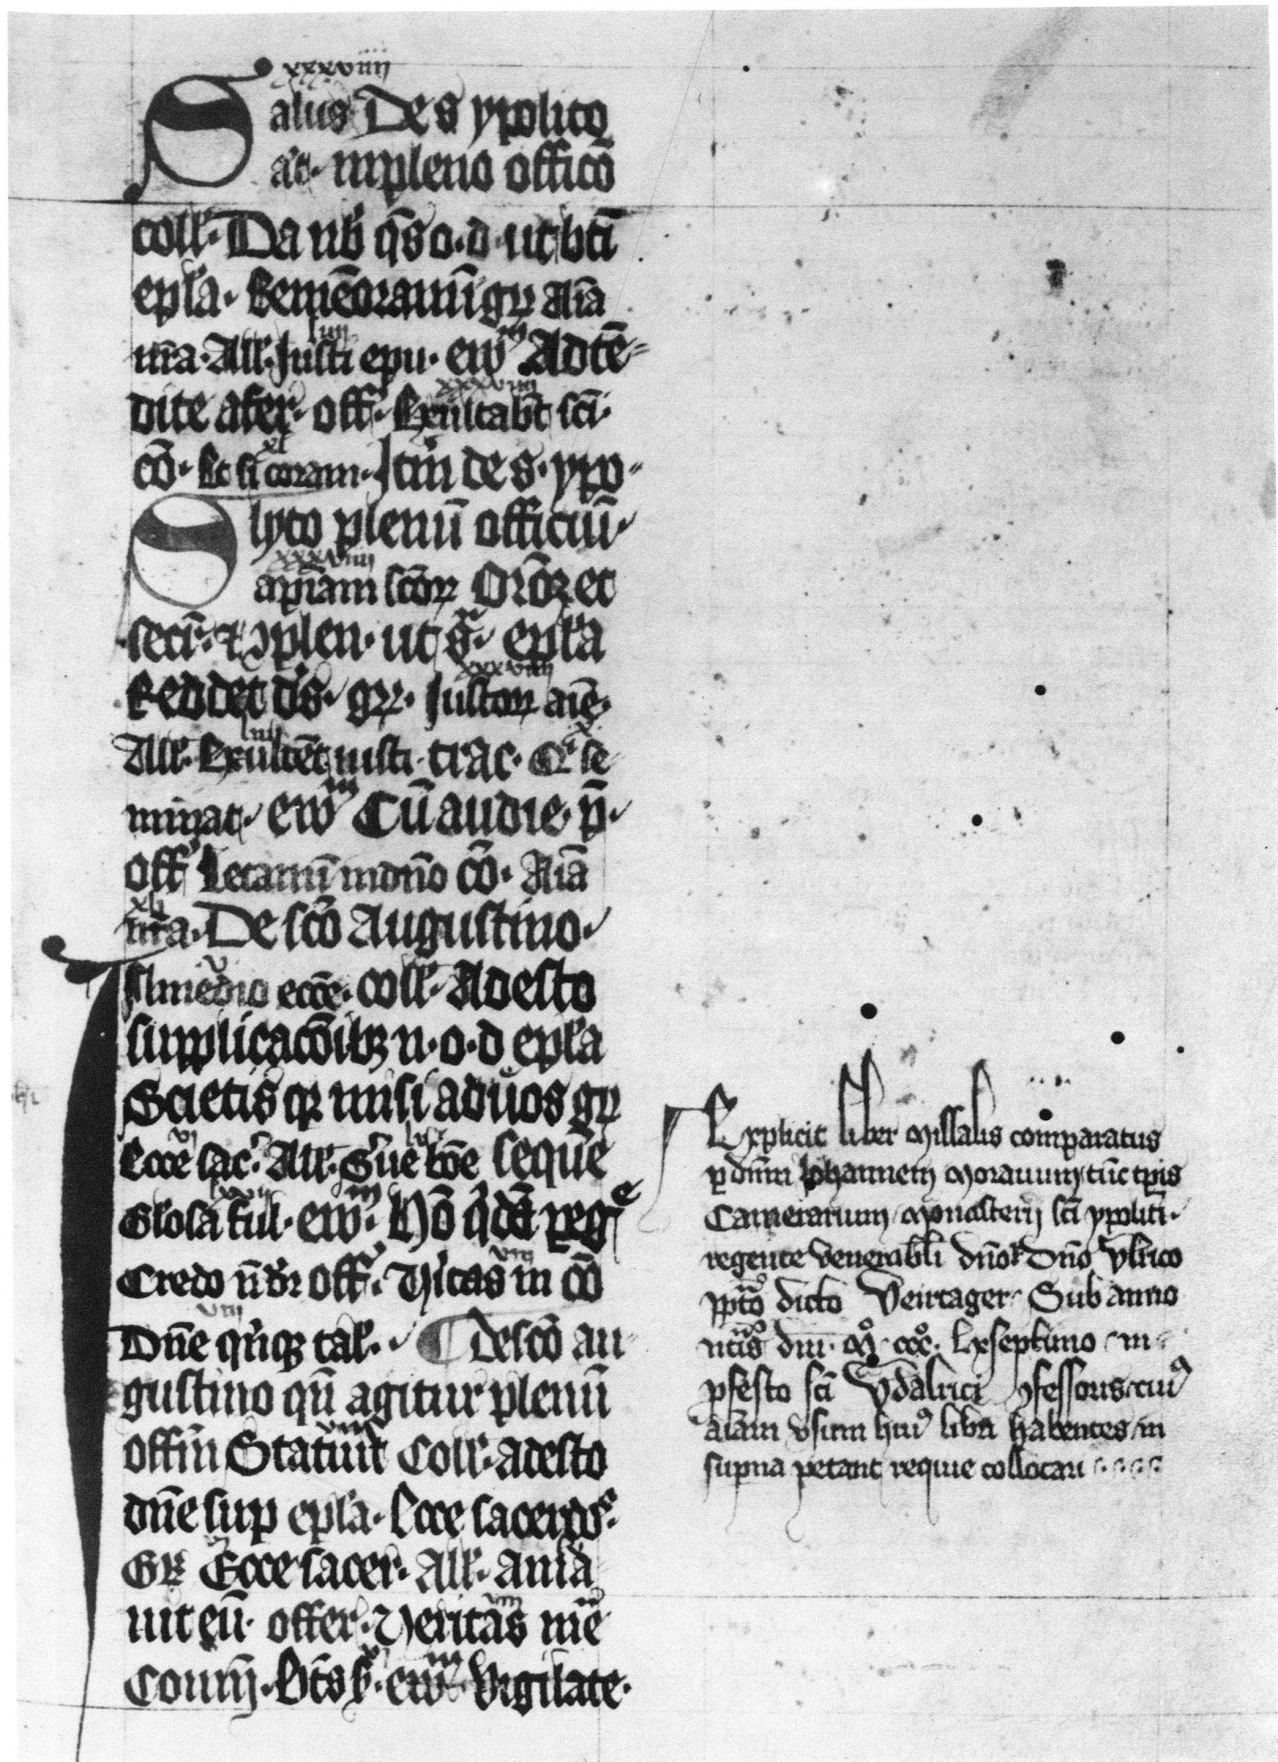 xxxviiij
Salus De s ypolito
ac inpleno officō
coll· Da nƀ q̄s o·d·ut bti
epła· Rememoramī gr̄ Aīa
nr̄a· All· Justi epu· ew̄ Adtē
dite afer· off· Exultabt sci·
cō· Et si coram· Itm de s· ypo
lyto plenū officiū·
xxxviiij
Sapīam scōꝝ Orōꝫ et
secr· ⁊ ꝯplen· ut s̄· epła
xxxviiij
Reddet ds̄· gr̄· Justoꝝ aīe·
All· Exultēt iusti· trac· Q se
minat· ew̄ Cū audie· p̄·
off Letamī in dn̄o cō· Aīa
xli
nr̄a· De scō Augustino·
v
In medio ecce· coll· Adesto
supplicacōibꝫ n·o·d epła
Scietis qꝛ misi ad uos gr̄
vi
Ecce sac· All· Seque
Glosa ful· ew̄· Hō qdā pegᵉ
Credo n̄ dr off· Vitas in cō
viij
Dn̄e qnqꝫ tal· De scō au
gustino qn̄ agitur plenū
viij
offm Statuit Coll· adesto
dn̄e sup epła· Ecce sacerdos·
Gr̄ Ecce sacer· All· ama
viij
uit eū· offer· Veritas mē
Comm̄· Bt̄s s· ew̄ Vigilate·
Explicit liber Missalis comparatus
p dn̄m Johannem Morauum tūc tp̄is
Camerarium Monasterij sc̄i ypoliti·
regente venerabili dn̄o dn̄o Vlrico
ppto dicto Veirtager· Sub anno
ntis dni· Mº· cccº· Lxseptimo in
pfesto sc̄i Vdalrici ꝯfessoris cuiꝰ
aīam vsum huiꝰ libri habentes in
supna petant requie collocari